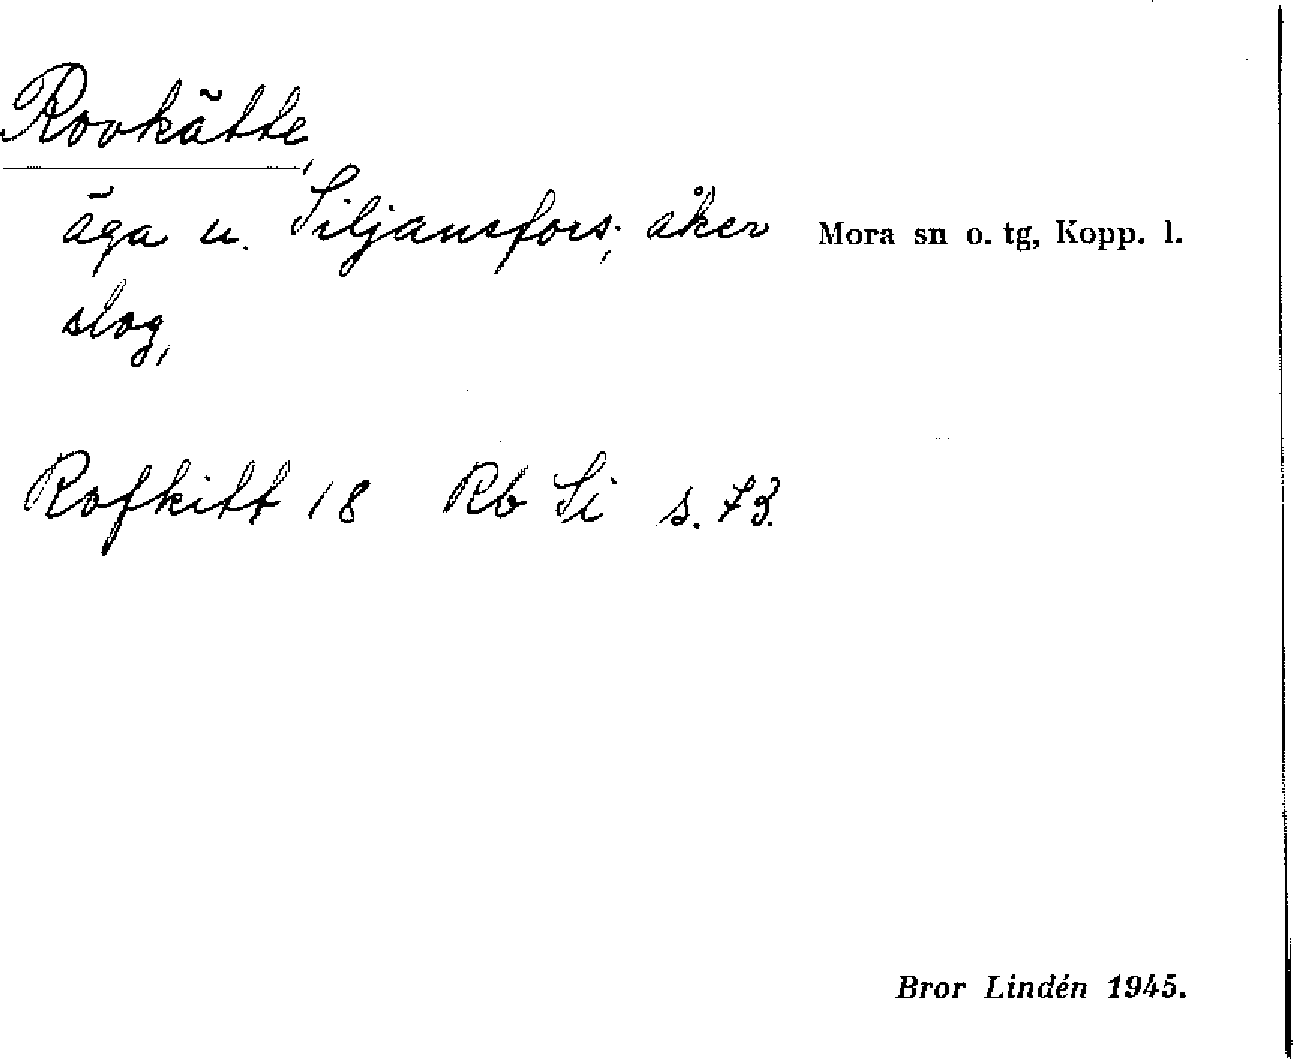 Rovkätte,
äga u. Siljansfors; åker Mora sn o. tg, Kopp. l.
slog,
Rofkitt 18 Rb Si s. 73.
Bror Lindén 1945.